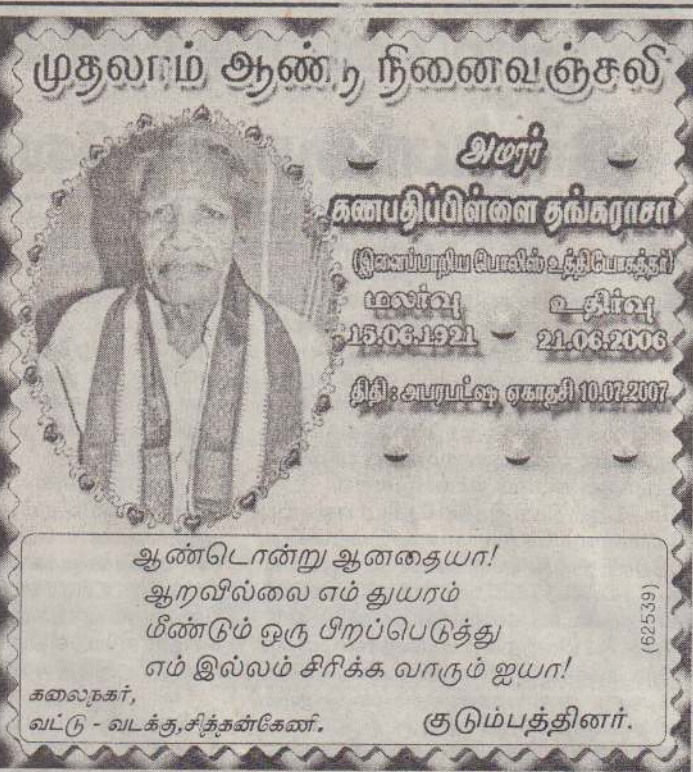 முதலாம் ஆண்டு நினைவஞ்சலி
அமரர்
கணபதிப்பிள்ளை தங்கராசா
(இளைப்பாறிய பொலிஸ் உத்தியோகத்தர்)
மலர்வு உதிர்வு
15.06.1921 - 21.06.2006
திதி : அபரபட்ஷ ஏகாதசி 10.07.2007
ஆண்டொன்று ஆனதையா!
ஆறவில்லை எம் துயரம்
மீண்டும் ஒரு பிறப்பெடுத்து
எம் இல்லம் சிரிக்க வாரும் ஐயா!
(62539)
கலைநகர்,
வட்டு - வடக்கு,சித்தன்கேணி. குடும்பத்தினர்.